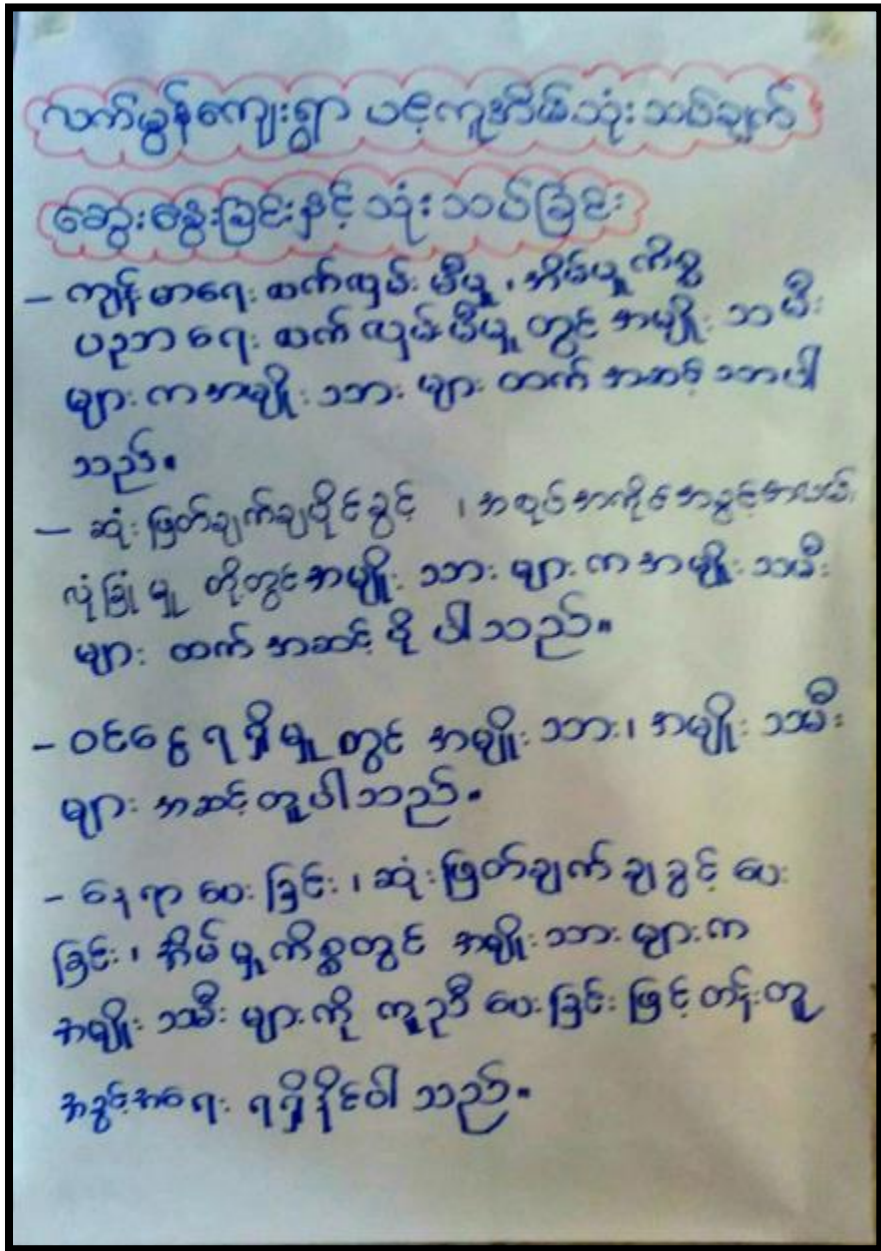 လက်ယွန်ကျေးရွာ ပင့်ကူအိမ်သုံးသပ်ချက်
ဆွေးနွေးခြင်းနှင့် သုံးသပ်ခြင်း
- ကျွန်းမာရေး စက်လှမ်းမီမှု ၊ အိမ်မှုကိစ္စ
ပညာရေး စက်လှမ်းမီမှု တွင် အမျိုးသမီး
များက အမျိုးသားများ ထက် အဆင့် သာပါ
သည်။
- ဆုံးဖြတ်ချက်ချပိုင်ခွင့် ၊ အလုပ်အကိုင်အခွင့်အလမ်း
လုံခြုံမှု တို့တွင် အမျိုးသားများက အမျိုးသမီး
များ ထက် အဆင့် ပိုပါသည်။
- ဝင်ငွေရရှိမှုတွင် အမျိုးသား၊ အမျိုးသမီး
များ အဆင့်တူပါသည်။
- နေရာပေးခြင်း ၊ ဆုံးဖြတ်ချက်ချခွင့် ပေး
ခြင်း ၊ အိမ်မှုကိစ္စတွင် အမျိုးသားများက
အမျိုးသမီးများကို ကူညီပေးခြင်းဖြင့် တန်းတူ
အခွင့်အရေး ရရှိနိုင်ပါသည်။